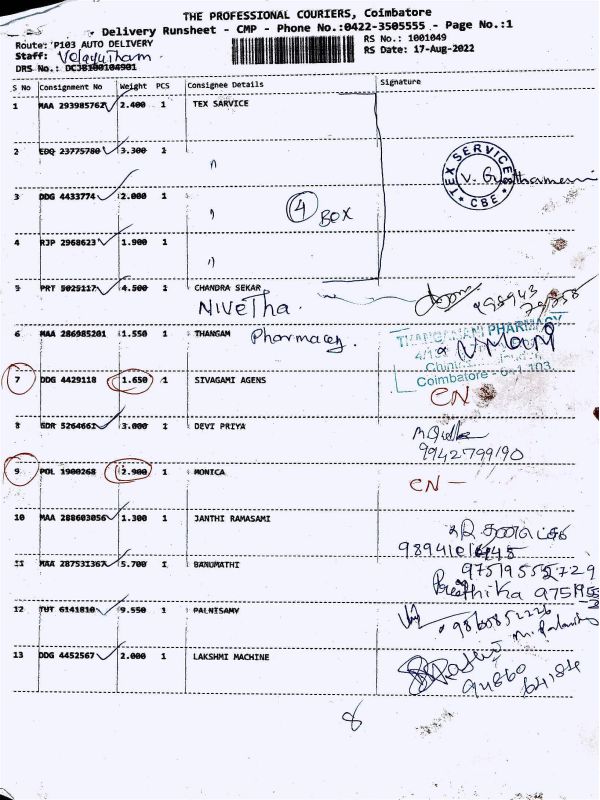 THE PROFESSIONAL COURIERS, Coimbatore
Delivery Runsheet - CMP - Phone No.:0422-3505555 - Page No.:1
Route: P103 AUTO DELIVERY RS No.: 1001049
Staff: Velayutham RS Date: 17-Aug-2022
DRS No.: DCJB100104901
S No Consignment No Weight PCS Consignee Details Signature
1 MAA 293985762 2.400 1 TEX SARVICE
2 EDQ 23775780 3.300 1 "
TEX SERVICE
CBE
3 DDG 4433774 2.000 1 " 4 BOX
4 RJP 2968623 1.900 1 "
5 PRT 5025117 4.500 1 CHANDRA SEKAR
Nivetha
6 MAA 286985201 1.550 1 THANGAM Pharmacy
PHARMACY
Coimbatore
7 DDG 4429118 1.650 1 SIVAGAMI AGENS CN
8 SDR 5264661 3.000 1 DEVI PRIYA
9942799190
9 POL 1900268 2.900 1 MONICA CN -
10 MAA 288603056 1.300 1 JANTHI RAMASAMI
11 MAA 287531367 5.700 1 BANUMATHI
Preethika
12 TUT 6141810 9.550 1 PALNISAMY
9860852226
13 DDG 4452567 2.000 1 LAKSHMI MACHINE
94860
64184
8